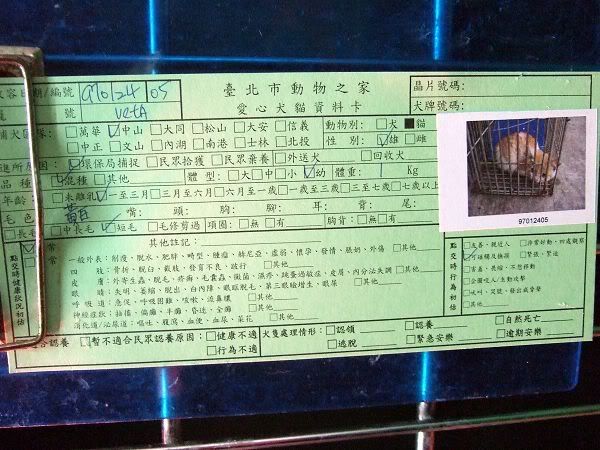 收容日期/編號 970124 05 臺北市動物之家 晶片號碼:
籠號 VetA 愛心犬貓資料卡 犬牌號碼:
捕犬區隊: □萬華 ☑中山 □大同 □松山 □大安 □信義 動物別: □犬 ■貓
□中正 □文山 □內湖 □南港 □士林 □北投 性別: ☑雄 □雌
進所原因: ☑環保局捕捉 □民眾拾獲 □民眾棄養 □外送犬 □回收犬
品種: ☑混種 □其他 體型: □大 □中 □小 ☑幼 體重: 1 Kg
年齡: □未離乳 ☑一至三月 □三月至六月 □六月至一歲 □一歲至三歲 □三至七歲 □七歲以上
毛色: 黃白 嘴: 頭: 胸: 腳: 耳: 背: 尾:
□長毛 □中長毛 ☑短毛 □毛修剪過 項圈: □無 □有 胸背: □無 □有
97012405
其他註記:
常 一般外表: 削瘦、脫水、肥胖、畸型、腫瘤、赫尼亞、虛弱、懷孕、發情、脹奶、外傷 □其他
四肢: 骨折、脫臼、截肢、發育不良、跛行 □其他
皮膚: 外寄生蟲、脫毛、疥癬、毛囊蟲、黴菌、濕疹、跳蚤過敏症、皮屑、內分泌失調 □其他
眼睛: 失明、萎縮、脫出、白內障、眼瞼脫毛、第三眼瞼增生、眼屎 □其他
呼吸道: 急促、呼吸困難、咳嗽、流鼻膿 □其他
神經症狀: 抽搐、偏癱、半癱、昏迷、全癱 □其他
消化道/泌尿道: 嘔吐、腹瀉、血便、血尿、菜花 □其他
點交時行為初估 □友善、親近人 □非常好動、四處觀察
☑可碰觸及撫摸 □緊張、緊迫
□害羞、畏縮、不想移動
□企圖咬人/主動攻擊
□吠叫、哭號、發出威脅聲
□其他
點交時健康狀況初估
適合認養 ☑暫不適合民眾認養原因: □健康不適 □行為不適
犬隻處理情形: □認領 □認養 □自然死亡
□逃脫 □緊急安樂 □逾期安樂